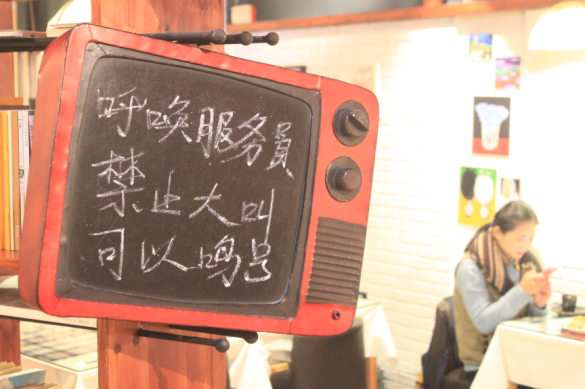 呼唤服务員
禁止大叫
可以鸣号